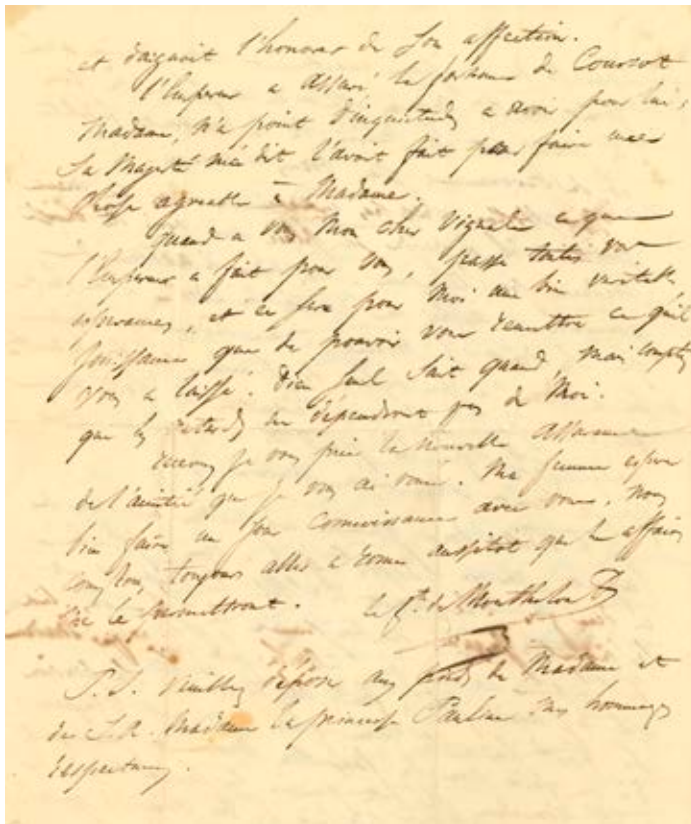 et daignoit l'honorer de Son affection.
l'Empereur a assuré la fortune de Coursot
Madame, n'a point d'inquietudes a avoir pour lui,
Sa Majesté m'a dit l'avoir fait pour faire une
Chose agreable à Madame.
quand a vous Mon cher Vignali ce que
l'Empereur a fait pour vous, passe toutes vos
esperances, et ce sera pour Moi une bien veritable
jouissance que de pouvoir vous remettre ce qu'il
vous a laissé. Dieu seul sait quand, mais comptez
que les retards ne dépendront pas de Moi.
recevez je vous prie la nouvelle assurance
de l'amitié que je vous ai vouée. Ma femme espere
bien faire un jour connoissance avec vous. Nous
toujours aller a rome aussitot que les affaires
me le permettront. le Cte. de Montholon
P.S. veuillez déposer aux pieds de Madame et
de S.A. Madame la princesse Pauline mes hommages
respectueux.